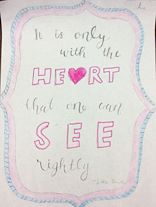 It is only
with the
HE♥RT
that one can
SEE
rightly